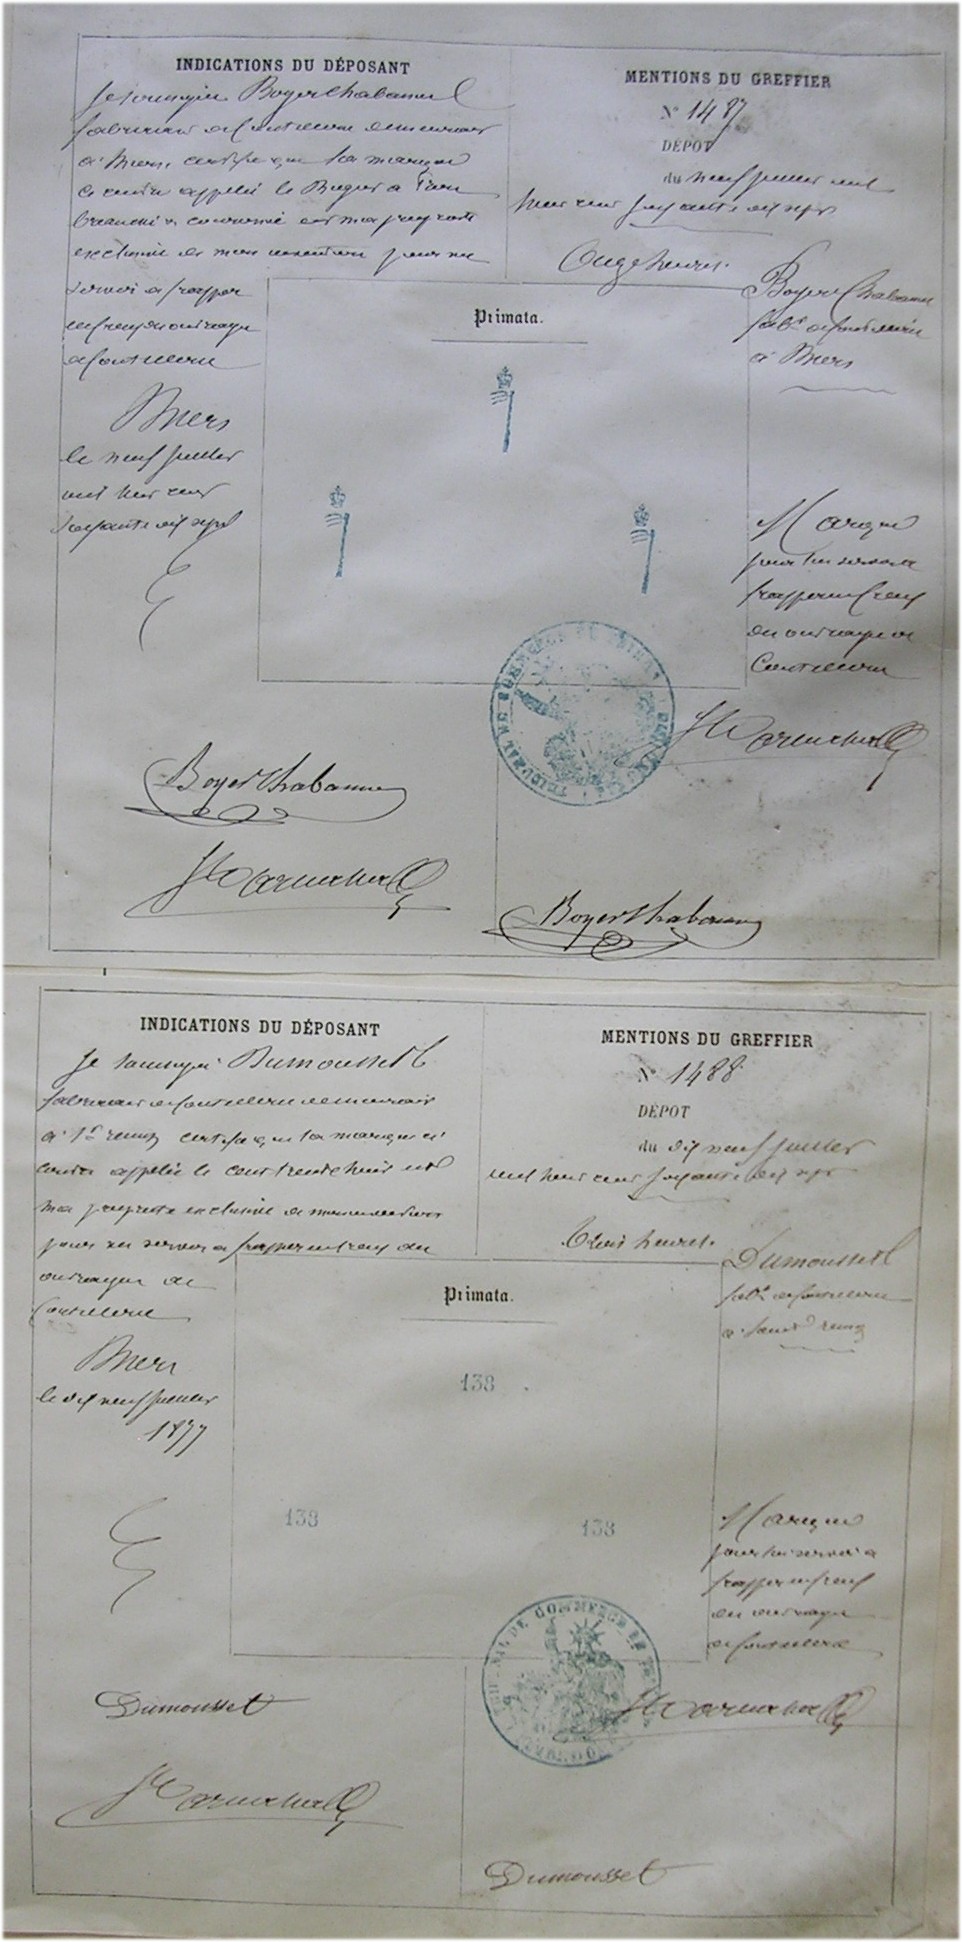 INDICATIONS DU DÉPOSANT
Je soussigné Boyer Chabanne
fabricant de Coutellerie demeurant
à Thiers, certifie que la marque
ci contre appelée le
couronné est ma propriété
exclusive de mon invention pour me
servir à frapper
ouvrage
de Coutellerie
Thiers
le neuf juillet
mil huit cent
soixante dix sept
Boyer Chabanne
MENTIONS DU GREFFIER
N° 1487
DÉPOT
du neuf juillet mil
huit cent soixante dix sept
Onze heures.
Primata.
Boyer Chabanne
fabt de Coutellerie
à Thiers
Marque
pour lui servir à
frapper
ouvrage de
Coutellerie
Boyer Chabanne
INDICATIONS DU DÉPOSANT
Je soussigné Dumousset
fabricant de Coutellerie demeurant
à St remy certifie que la marque ci
contre appelée le cent trente huit est
ma propriété exclusive de mon invention
pour me servir à frapper
ouvrages de
Coutellerie
Thiers
le dix neuf juillet
1877
Dumousset
MENTIONS DU GREFFIER
N° 1488
DÉPOT
du dix neuf juillet
mil huit cent soixante dix sept
Trois heures.
Primata.
138
138
138
Dumousset
fabt de Coutellerie
à Saint remy
Marque
pour lui servir à
frapper
ouvrage
de Coutellerie
TRIBUNAL DE COMMERCE
Dumousset